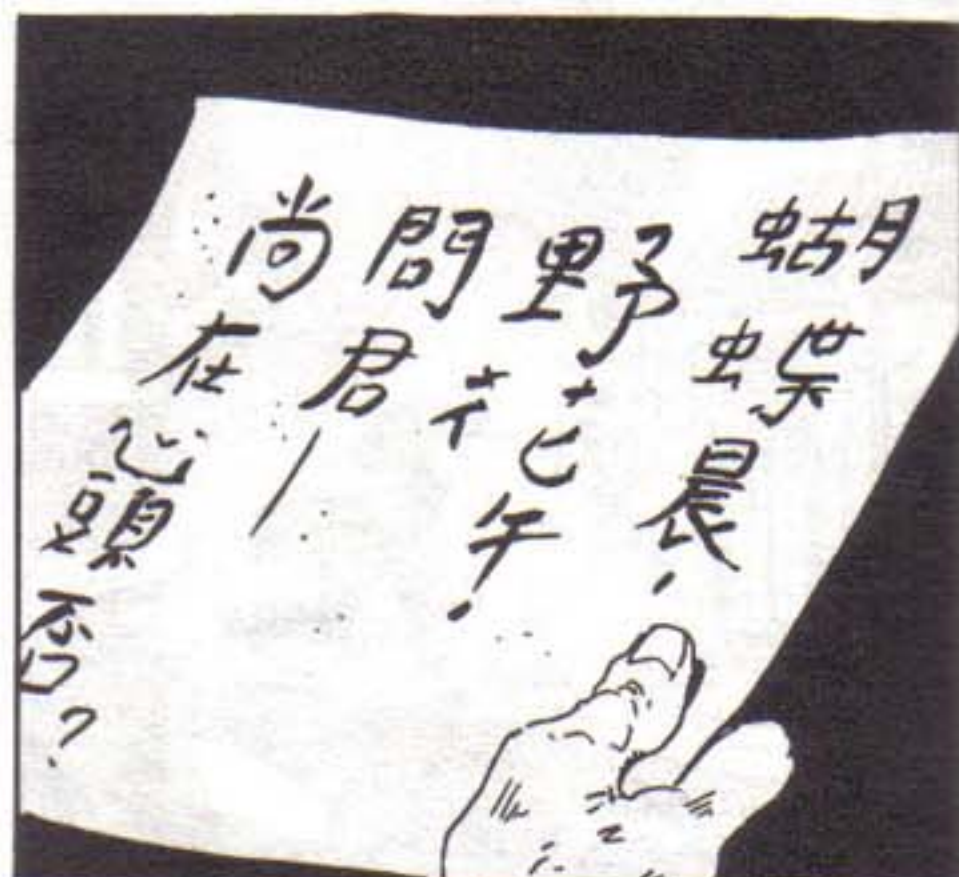 蝴蝶晨，
野花午，
問君—
尚在心頭否？